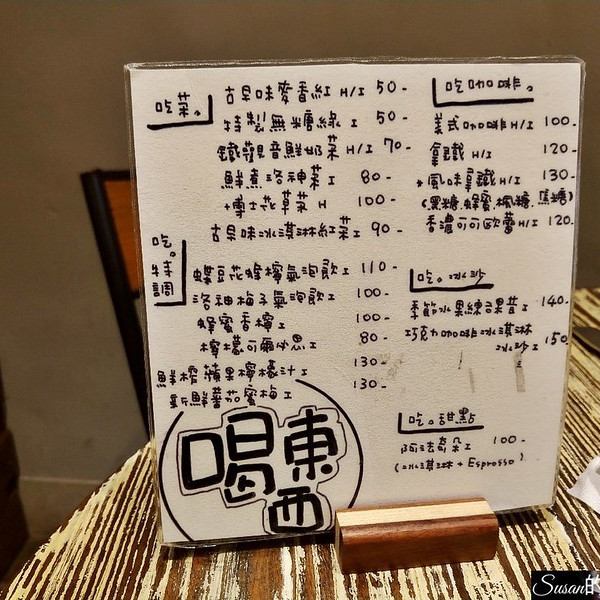 吃菜。
古早味麥香紅 H/I 50-
特製無糖綠 I 50-
鐵觀音鮮奶菜 H/I 70-
鮮煮洛神菜 I 80-
+博士花草菜 H 100-
古早味冰淇淋紅菜 I 90-
吃。特調
蝶豆花蜂檸氣泡飲 I 110-
洛神梅子氣泡飲 I 100-
蜂蜜香檸 I 100-
檸檬可爾必思 I 80-
鮮榨蘋果檸檬汁 I 130-
新鮮蕃茄蜜梅 I 130-
喝東西
吃咖啡。
美式咖啡 H/I 100-
拿鐵 H/I 120-
+風味拿鐵 H/I 130-
(黑糖.蜂蜜.楓糖.焦糖)
香濃可可歐蕾 H/I 120
吃。冰沙
季節水果綜合果昔 I 140-
巧克力咖啡冰淇淋
冰沙 I 150
吃。甜點
阿法奇朵 I 100-
(冰淇淋+Espresso)
Susan的